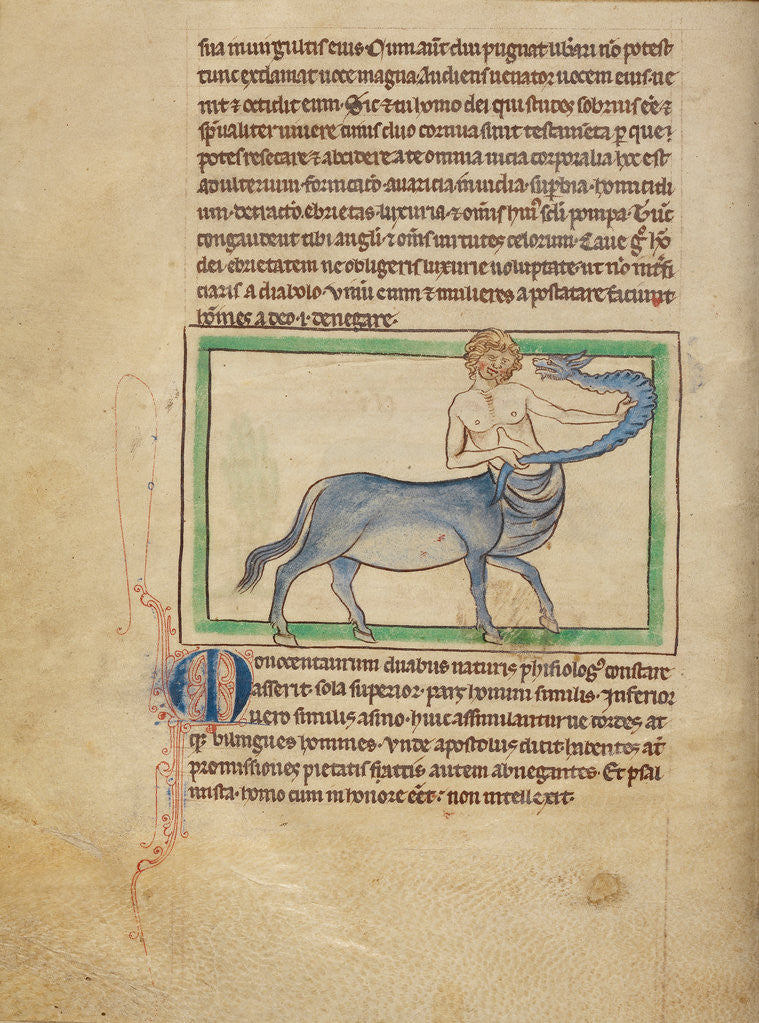 sua in virgultis eius. Cum aut̄ diu pugnat ⁊ libari nō potest
tunc exclamat uoce magna. Audiens uenator uocem eius ue
nit ⁊ occidit eum. Sic ⁊ tu homo dei qui studes sobrius eē ⁊
sp̄ualiter uiuere cuius duo cornua sunt testam̄ta p que
potes resecare ⁊ abscidere a te omnia uicia corporalia hoc est
adulterium. fornicatō. auaricia. inuidia. suꝑbia. homicidi
um. detractō. ebrietas. luxuria. ⁊ om̄is hui⁹ scl̄i pompa. Tūc
congaudent tibi angl̄i ⁊ om̄s uirtutes celorum. Caue gͦ hō
dei ebrietatem ne obligeris luxurie uoluptate. ut nō int̄fi
ciaris a diabolo. Vinū enim ⁊ mulieres apostatare faciunt
hōīnes a deo .i. denegare.
Onocentaurum duabus naturis phisiologꝰ constare
asserit. sola superior pars homini similis. Inferior
uero similis asino. huic assimilantur uecordes at
qꝫ bilingues homines. Vnde apostolus dicit habentes aūt
promissiones pietatis factis autem abnegantes. Et psal
mista. homo cum in honore eēt: non intellexit.